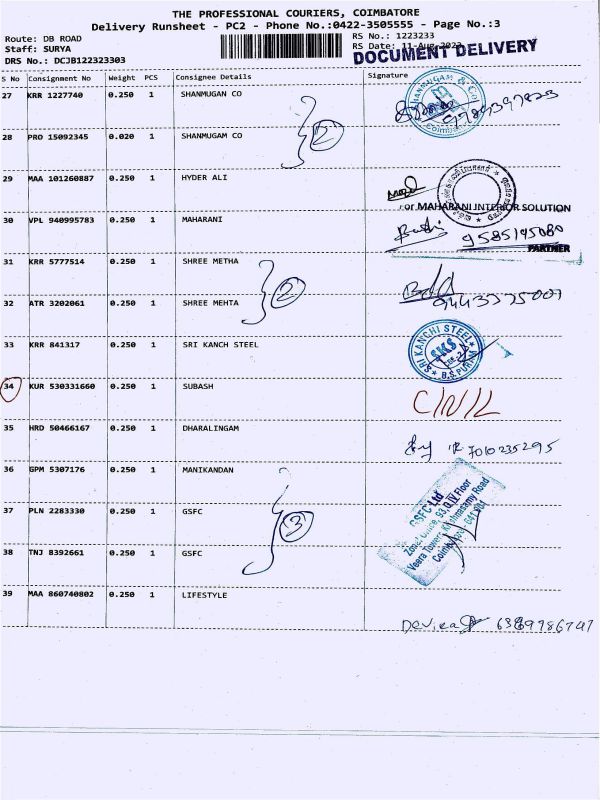 THE PROFESSIONAL COURIERS, COIMBATORE
Delivery Runsheet - PC2 - Phone No.:0422-3505555 - Page No.:3
Route: DB ROAD RS No.: 1223233
Staff: SURYA RS Date: 11-Aug-2023
DRS No.: DCJB122323303 DOCUMENT DELIVERY
S No Consignment No Weight PCS Consignee Details Signature
27 KRR 1227740 0.250 1 SHANMUGAN CO
28 PRO 15092345 0.020 1 SHANMUGAM CO
2
29 MAA 101260887 0.250 1 HYDER ALI
For MAHARANI INTERIOR SOLUTION
30 VPL 940995783 0.250 1 MAHARANI
9585195080
PARTNER
31 KRR 5777514 0.250 1 SHREE METHA
2
32 ATR 3202061 0.250 1 SHREE MEHTA
33 KRR 841317 0.250 1 SRI KANCH STEEL
SRI KANCHI STEEL
SKS
B.S.PURAM
34 KUR 530331660 0.250 1 SUBASH
C/N/L
35 HRD 50466167 0.250 1 DHARALINGAM
7010235295
36 GPM 5307176 0.250 1 MANIKANDAN
37 PLN 2283330 0.250 1 GSFC
3
GSFC Ltd
Zonal Office, 93,D,IV Floor
Veera Towers, Krishnasamy Road
38 TNJ 8392661 0.250 1 GSFC
39 MAA 860740802 0.250 1 LIFESTYLE